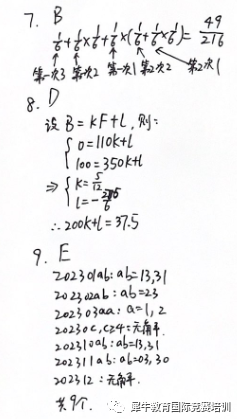 7. B
1/6+1/6×1/6+1/6×(1/6+1/6×1/6)=49/216
第一次3 第一次2 第一次1 第二次2 第二次1
8. D
设B=kF+l,则:
{0=110k+l
100=350k+l
⇒{k=5/12
l=-275/6
∴200k+l=37.5
9. E
202301ab:ab=13,31
202302ab:ab=23
202303aa:a=1,2
20230c,c≥4:无解.
202310ab:ab=13,31
202311ab:ab=03,30
202312:无解.
共9个.
犀牛教育国际竞赛培训